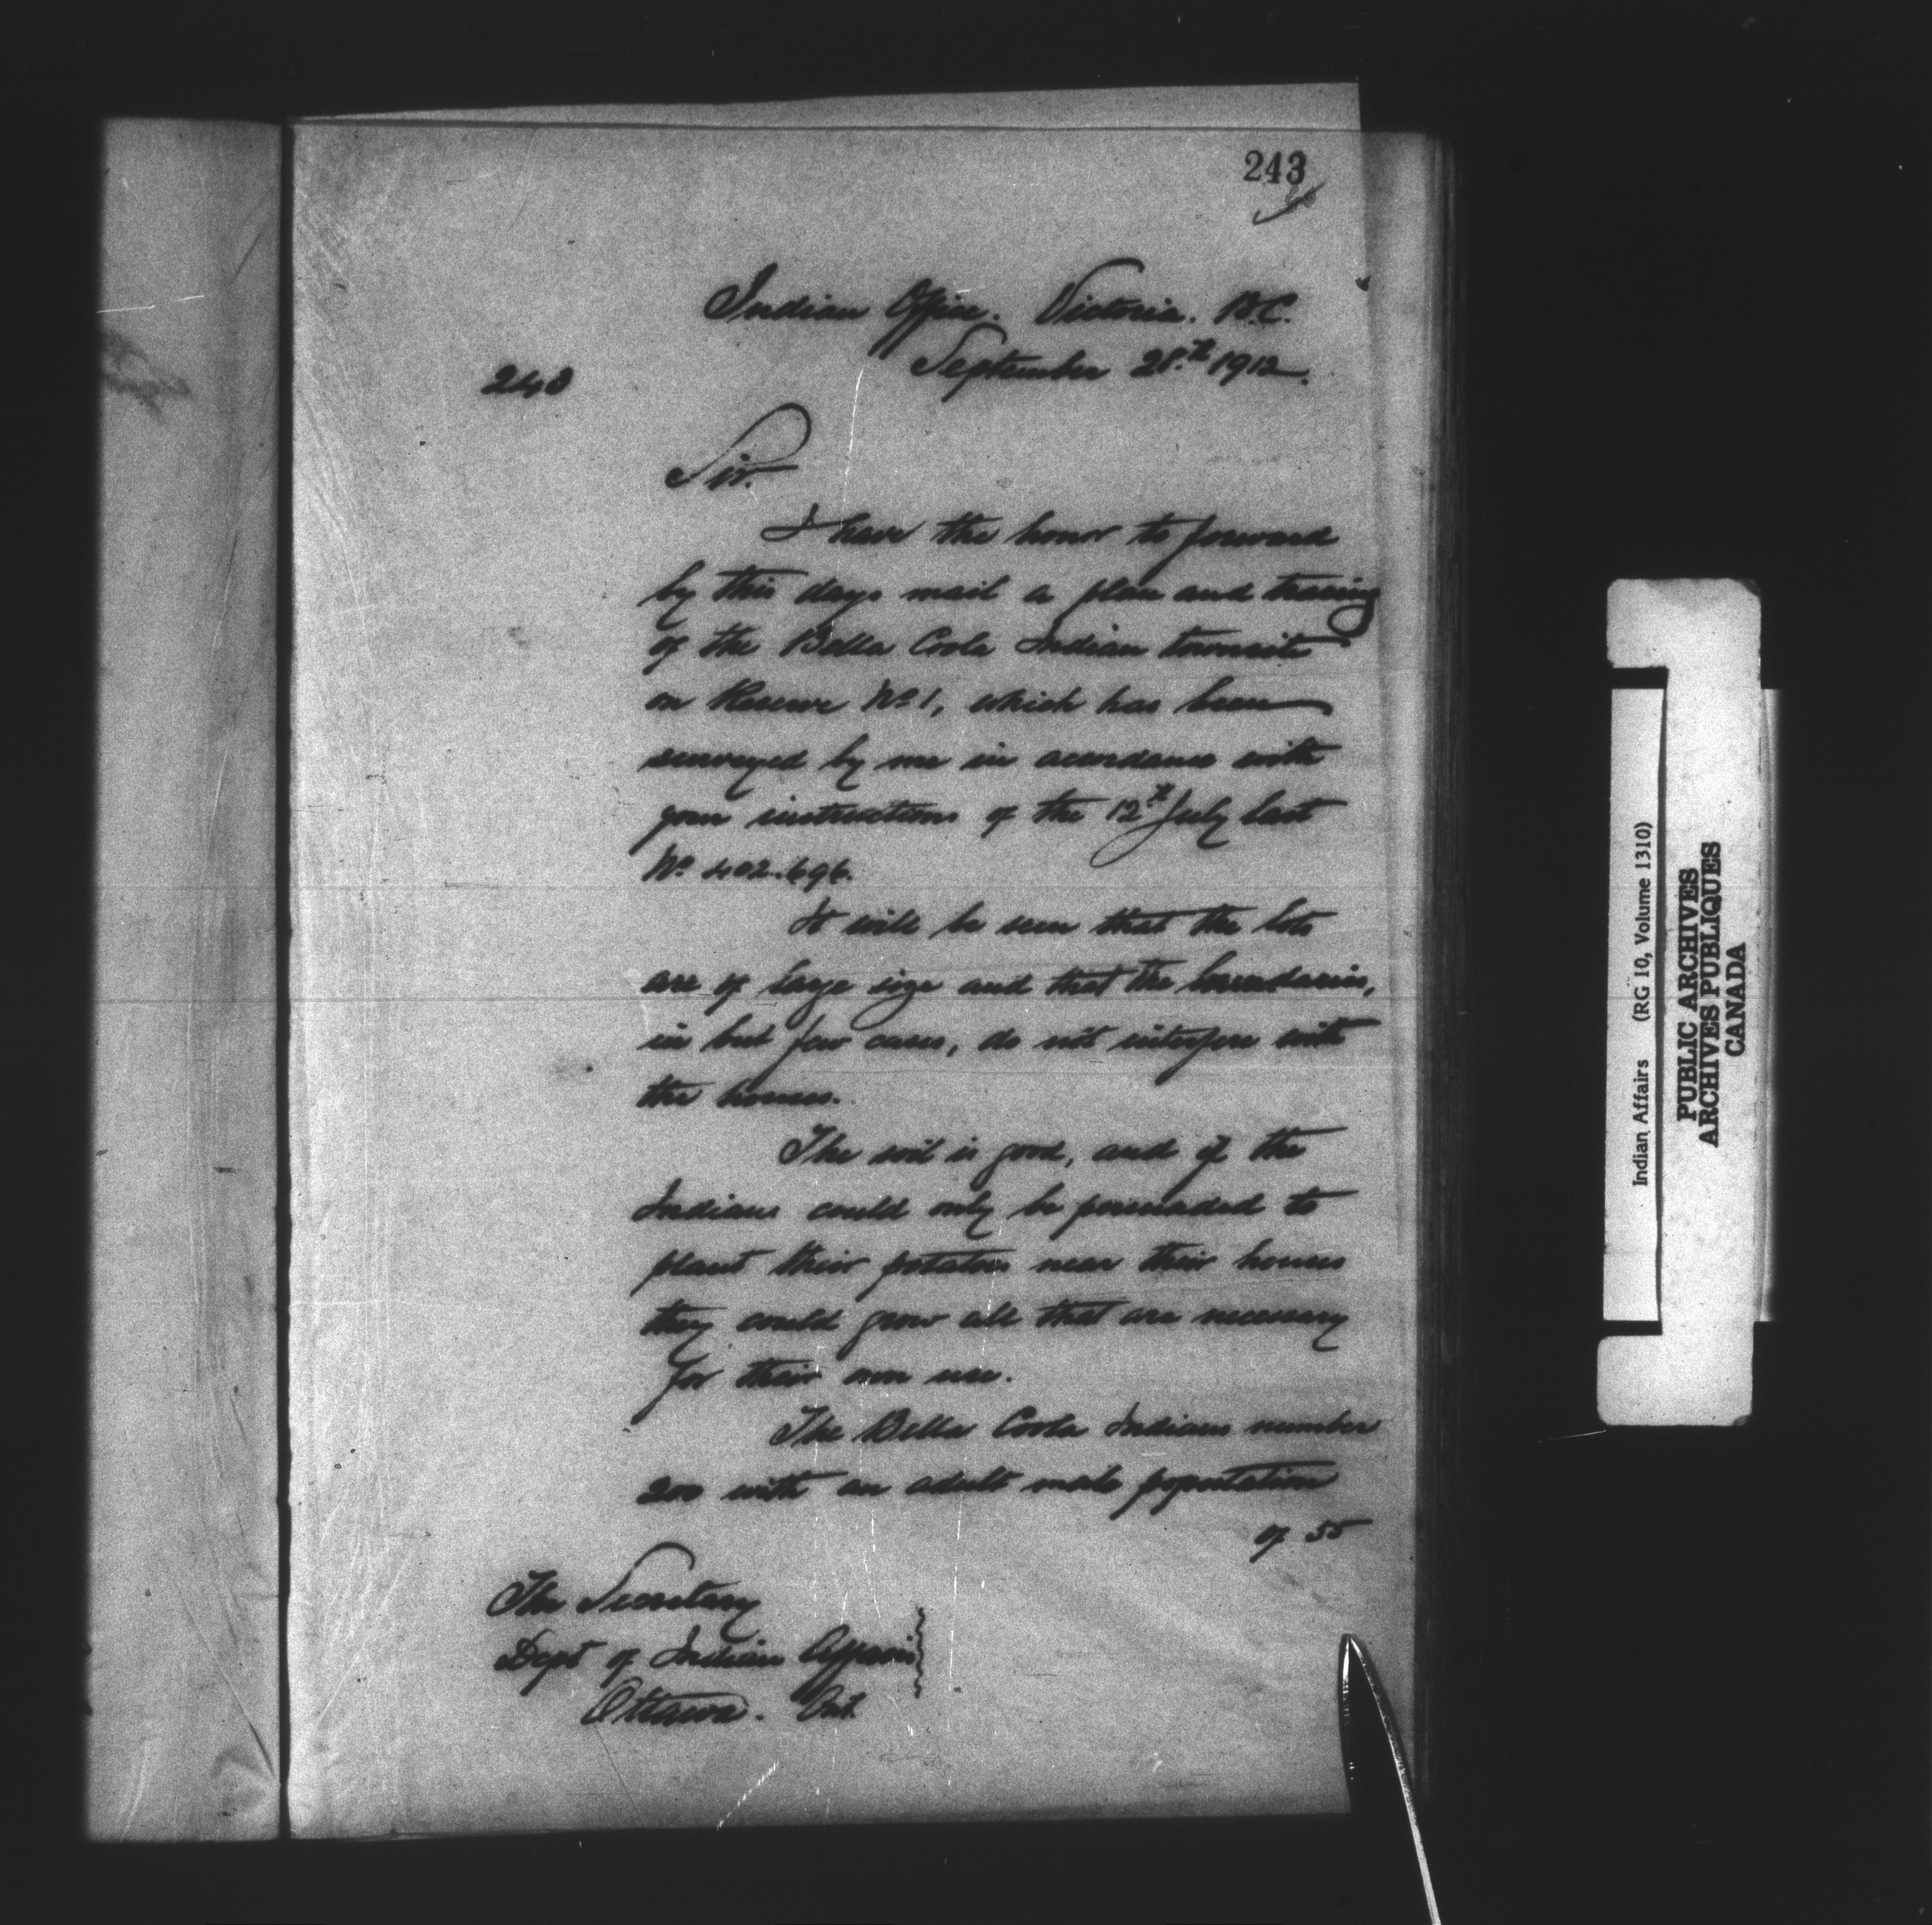 243
Indian Office. Victoria. B.C.
September 28th 1912.
243
Sir.
I have the honor to forward
by this days mail a plan and tracing
of the Bella Coola Indian townsite
on Reserve No 1, which has been
surveyed by me in accordance with
your instructions of the 12th July last
No 402.696.
It will be seen that the lots
are of large size and that the boundaries,
in but few cases, do not interfere with
the houses.
The soil is good, and if the
Indians could only be persuaded to
plant their potatoes near their houses
they could grow all that are necessary
for their own use.
The Bella Coola Indians number
200 with an adult male population
of 55
The Secretary
Dept of Indian Affairs
Ottawa. Ont.
Indian Affairs (RG 10, Volume 1310)
PUBLIC ARCHIVES
ARCHIVES PUBLIQUES
CANADA